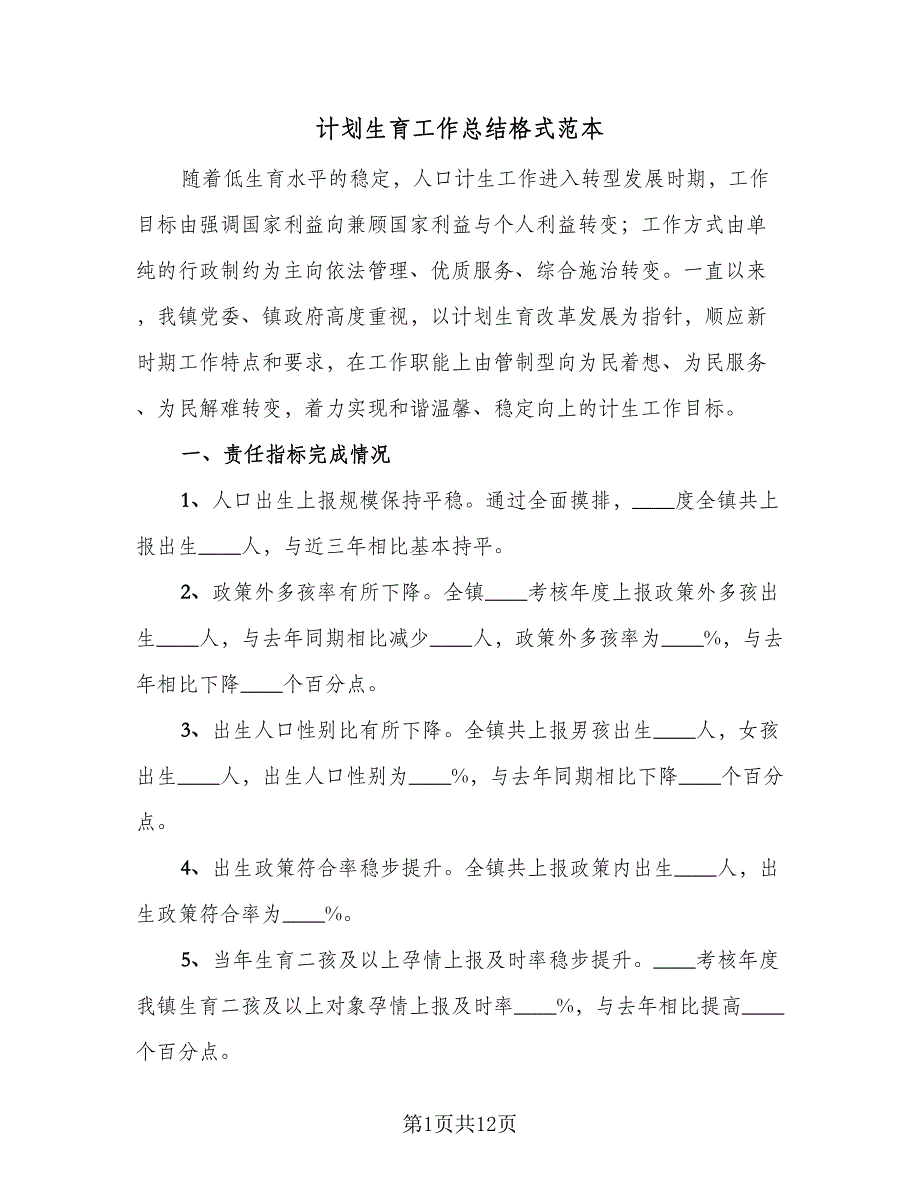 计划生育工作总结格式范本
随着低生育水平的稳定，人口计生工作进入转型发展时期，工作
目标由强调国家利益向兼顾国家利益与个人利益转变；工作方式由单
纯的行政制约为主向依法管理、优质服务、综合施治转变。一直以来
，我镇党委、镇政府高度重视，以计划生育改革发展为指针，顺应新
时期工作特点和要求，在工作职能上由管制型向为民着想、为民服务
、为民解难转变，着力实现和谐温馨、稳定向上的计生工作目标。
一、责任指标完成情况
1、人口出生上报规模保持平稳。通过全面摸排，____度全镇共上
报出生____人，与近三年相比基本持平。
2、政策外多孩率有所下降。全镇____考核年度上报政策外多孩出
生____人，与去年同期相比减少____人，政策外多孩率为____%，与去
年相比下降____个百分点。
3、出生人口性别比有所下降。全镇共上报男孩出生____人，女孩
出生____人，出生人口性别为____%，与去年同期相比下降____个百分
点。
4、出生政策符合率稳步提升。全镇共上报政策内出生____人，出
生政策符合率为____%。
5、当年生育二孩及以上孕情上报及时率稳步提升。____考核年度
我镇生育二孩及以上对象孕情上报及时率____%，与去年相比提高____
个百分点。
第1页共12页